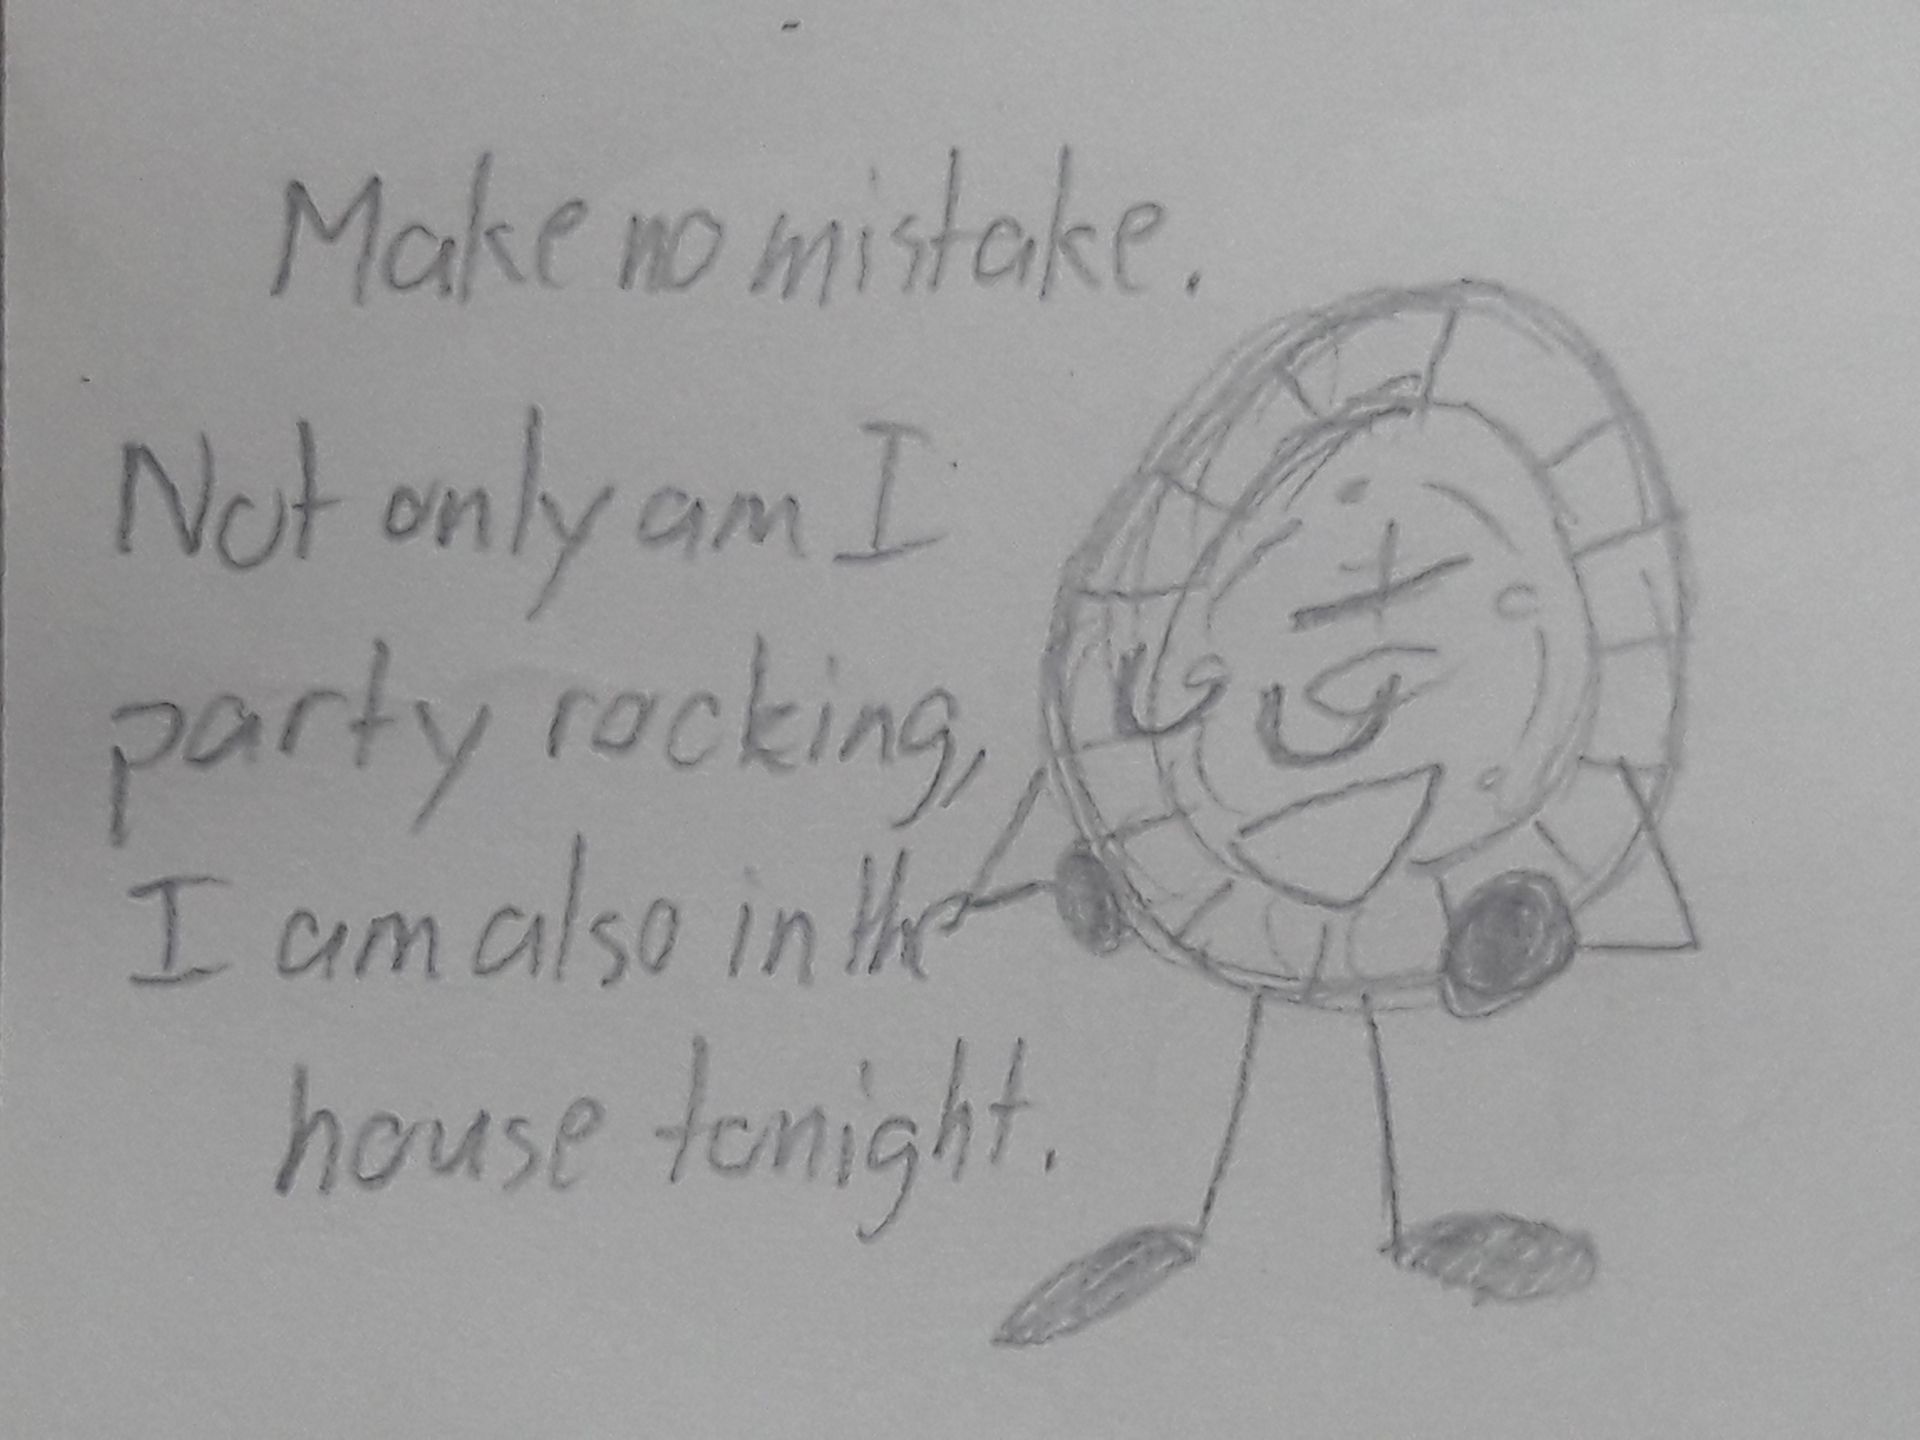 Make no mistake.
Not only am I
party rocking,
I am also in the
house tonight.